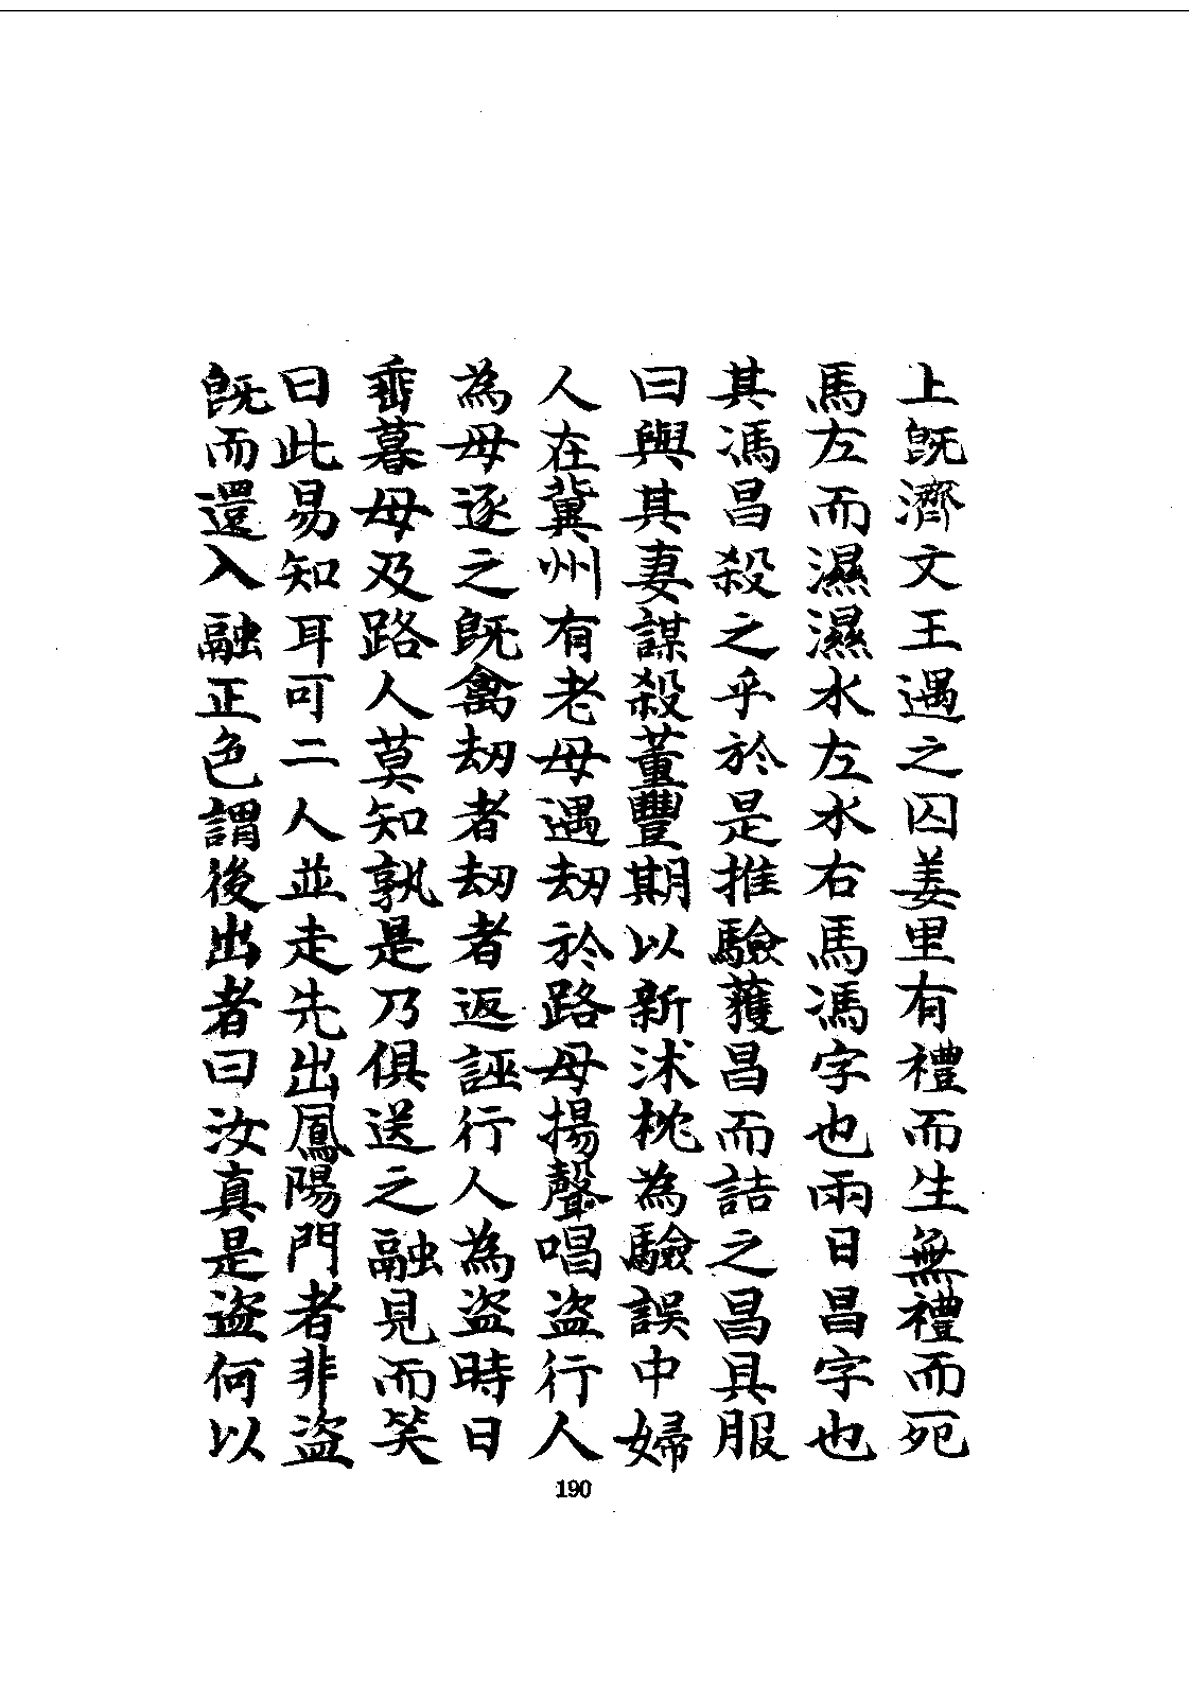 上旣濟文王遇之囚羑里有禮而生無禮而死
馬左而濕濕水左水右馬馮字也兩日昌字也
其馮昌殺之乎於是推驗獲昌而詰之昌具服
曰與其妻謀殺董豐期以新沐枕為驗誤中婦
人在冀州有老母遇劫於路母揚聲唱盜行人
為母逐之旣禽劫者劫者返誣行人為盜時日
垂暮母及路人莫知孰是乃俱送之融見而笑
曰此易知耳可二人並走先出鳳陽門者非盜
旣而還入融正色謂後出者曰汝真是盜何以
190